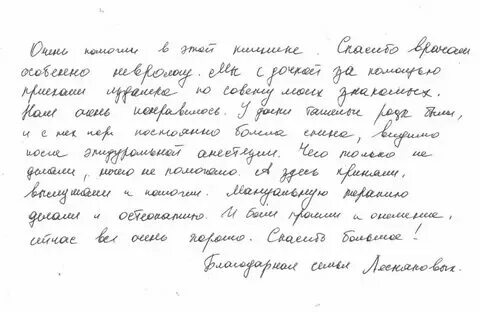 Очень помогли в этой клинике. Спасибо врачам
особенно неврологу. Мы с дочкой за помощью
приехали издалека по совету моих знакомых.
Нам очень понравилось. У дочки тяжелые роды были,
и с тех пор постоянно болела спина, видимо
после эпидуральной анестезии. Чего только не
делали, ничего не помогало. А здесь приняли,
выслушали и помогли. Мануальную терапию
делали и остеопатию. И боли прошли и онемение,
сейчас все очень хорошо. Спасибо большое!
Благодарная семья Лесняковых.